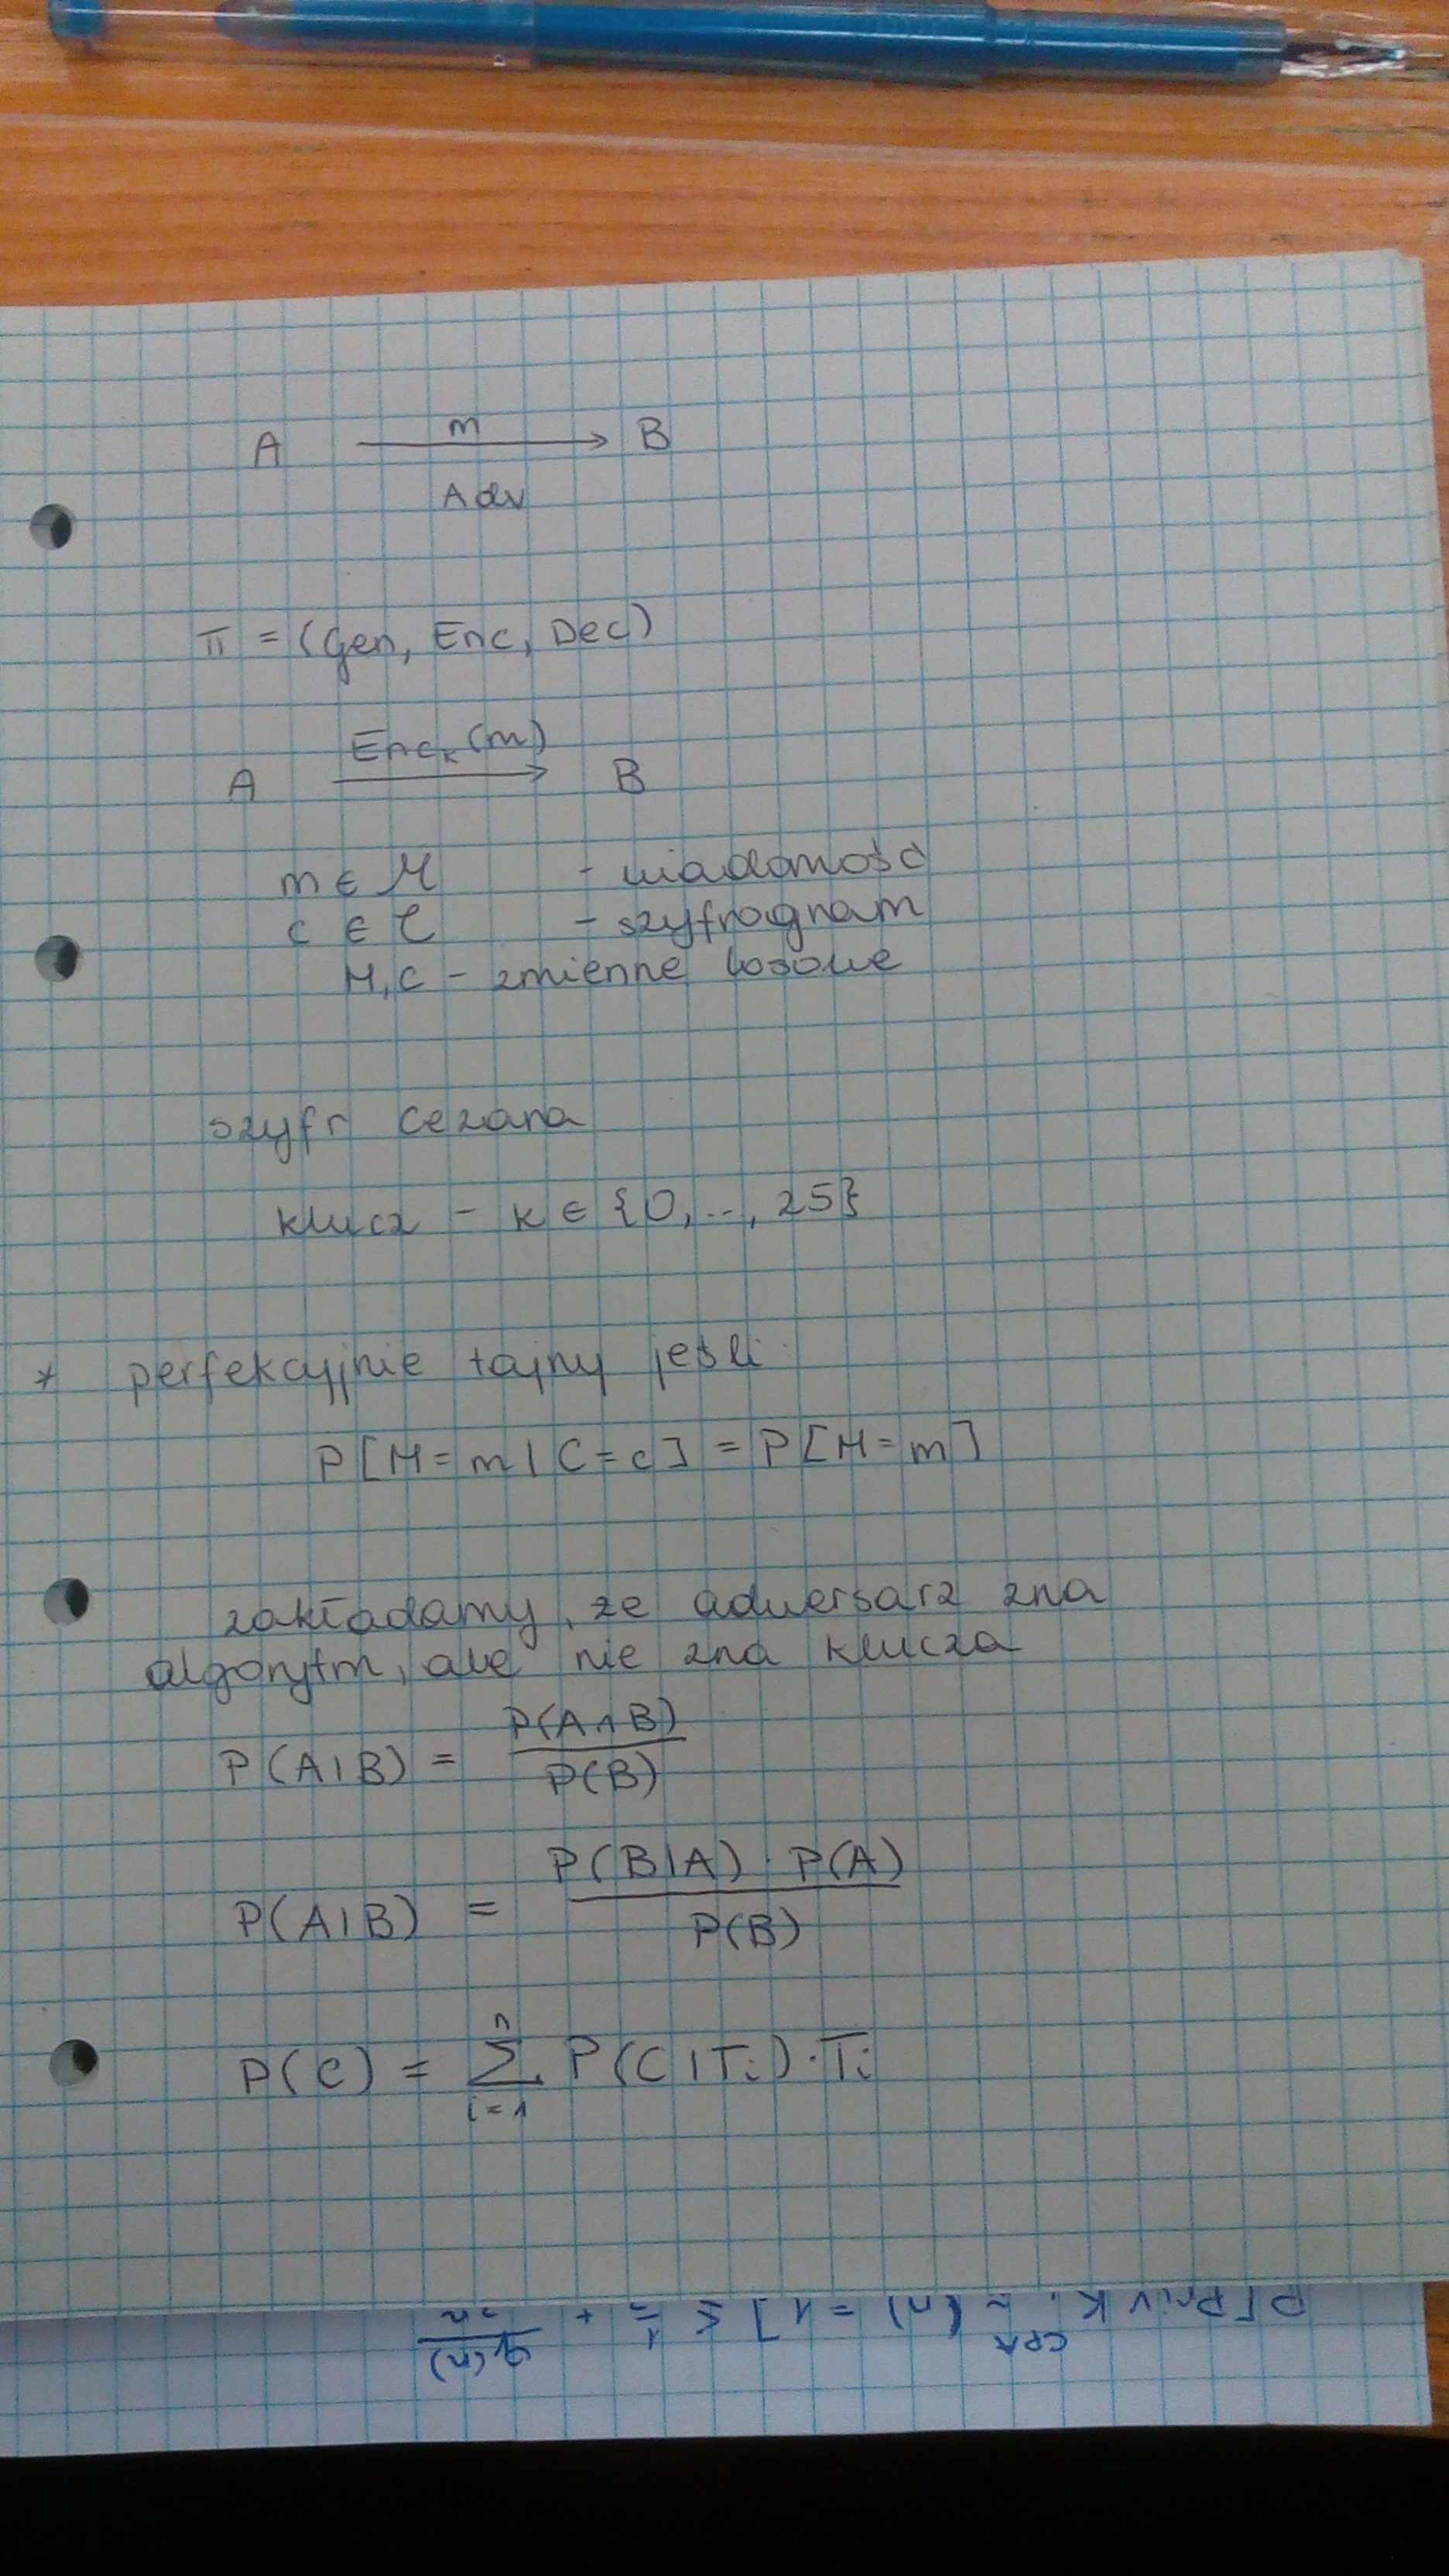 A m B
Adv
π = (Gen, Enc, Dec)
Encₖ(m)
A B
m ∈ ℳ - wiadomość
c ∈ 𝒞 - szyfrogram
M, C - zmienne losowe
szyfr cezara
klucz - k ∈ {0, .., 25}
* perfekcyjnie tajny jeśli:
P[M = m | C = c] = P[M = m]
zakładamy, że adwersarz zna
algorytm, ale nie zna klucza
P(A|B) = P(A∧B) / P(B)
P(A|B) = P(B|A) · P(A) / P(B)
P(C) = ∑ᵢ₌₁ⁿ P(C|Tᵢ) · Tᵢ
P[PrivK (n) = 1] ≤ 1/2 + q(n)/2ⁿ
CPA